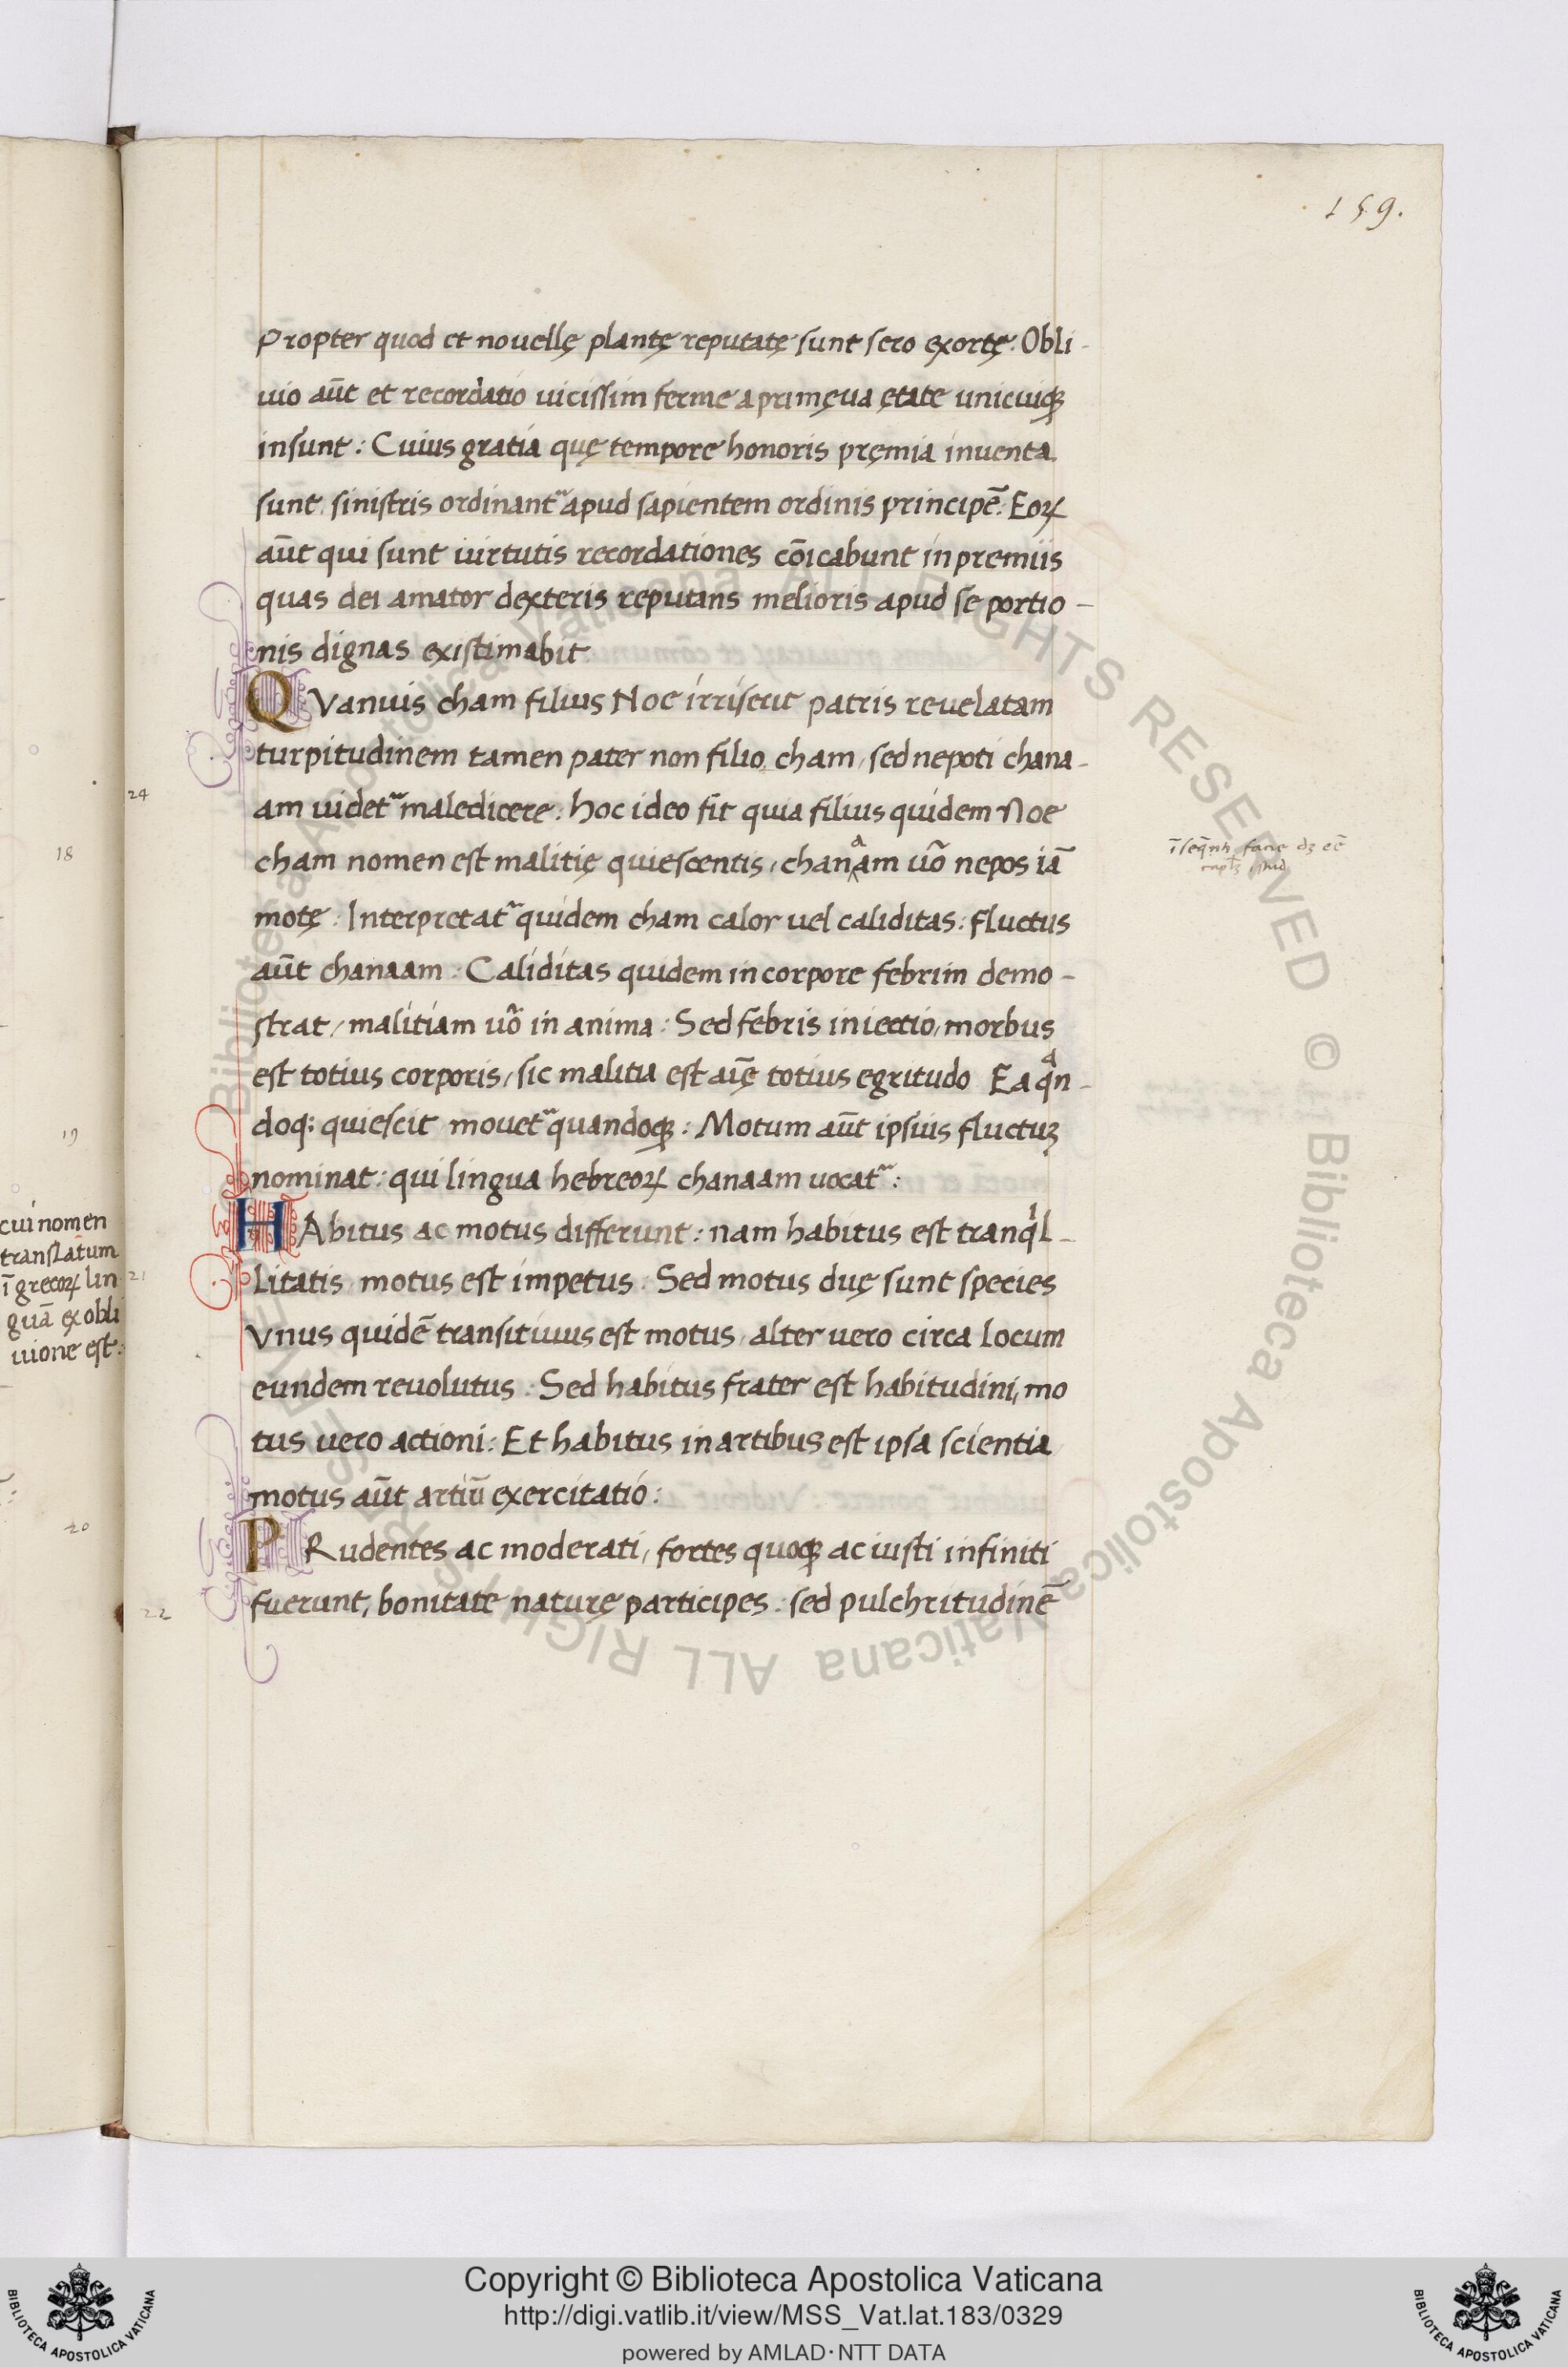 159.
Propter quod et nouellę plantę reputatę sunt sero exortę: Obli-
uio aūt et recordatio uicissim ferme a primęua ętate unicuiqꝫ
insunt: Cuius gratia quę tempore honoris pręmia inuenta
sunt sinistris ordinantᷣ apud sapientem ordinis principē: Eoꝝ
aūt qui sunt uirtutis recordationes cōicabunt in premiis
quas dei amator dexteris reputans melioris apud se portio-
nis dignas existimabit
QVanuis cham filius Noe irriserit patris reuelatam
turpitudinem tamen pater non filio cham, sed nepoti chana-
am uidetᷣ maledicere: hoc ideo fit quia filius quidem Noe
cham nomen est malitię quiescentis, chanaam uō nepos iā
motę: Interpretatᷣ quidem cham calor uel caliditas: fluctus
aūt chanaam: Caliditas quidem in corpore febrim demo-
strat, malitiam uō in anima: Sed febris iniectio, morbus
est totius corporis, sic malitia est aīę totius egritudo Ea qᵃn-
doq; quiescit mouetᷣ quandoqꝫ: Motum aūt ipsius fluctuꝫ
nominat: qui lingua hebreoꝝ chanaam uocatᷣ:
HAbitus ac motus differunt: nam habitus est tranqⁱl-
litatis motus est impetus. Sed motus duę sunt species
Vnus quidē transitiuus est motus, alter uero circa locum
eundem reuolutus: Sed habitus frater est habitudini, mo
tus uero actioni: Et habitus in artibus est ipsa scientia
motus aūt artiū exercitatio:
PRudentes ac moderati, fortes quoqꝫ ac iusti infiniti
fuerunt, bonitate naturę participes: sed pulchritudinē
24
21
22
18
19
20
cui nomen
translatum
ī grecoꝝ lin
guā ex obli
uione est:
Copyright © Biblioteca Apostolica Vaticana
http://digi.vatlib.it/view/MSS_Vat.lat.183/0329
powered by AMLAD·NTT DATA
BIBLIOTECA APOSTOLICA VATICANA
BIBLIOTECA APOSTOLICA VATICANA
Biblioteca Apostolica Vaticana ALL RIGHTS RESERVED © Biblioteca Apostolica Vaticana ALL RIGHTS RESERVED